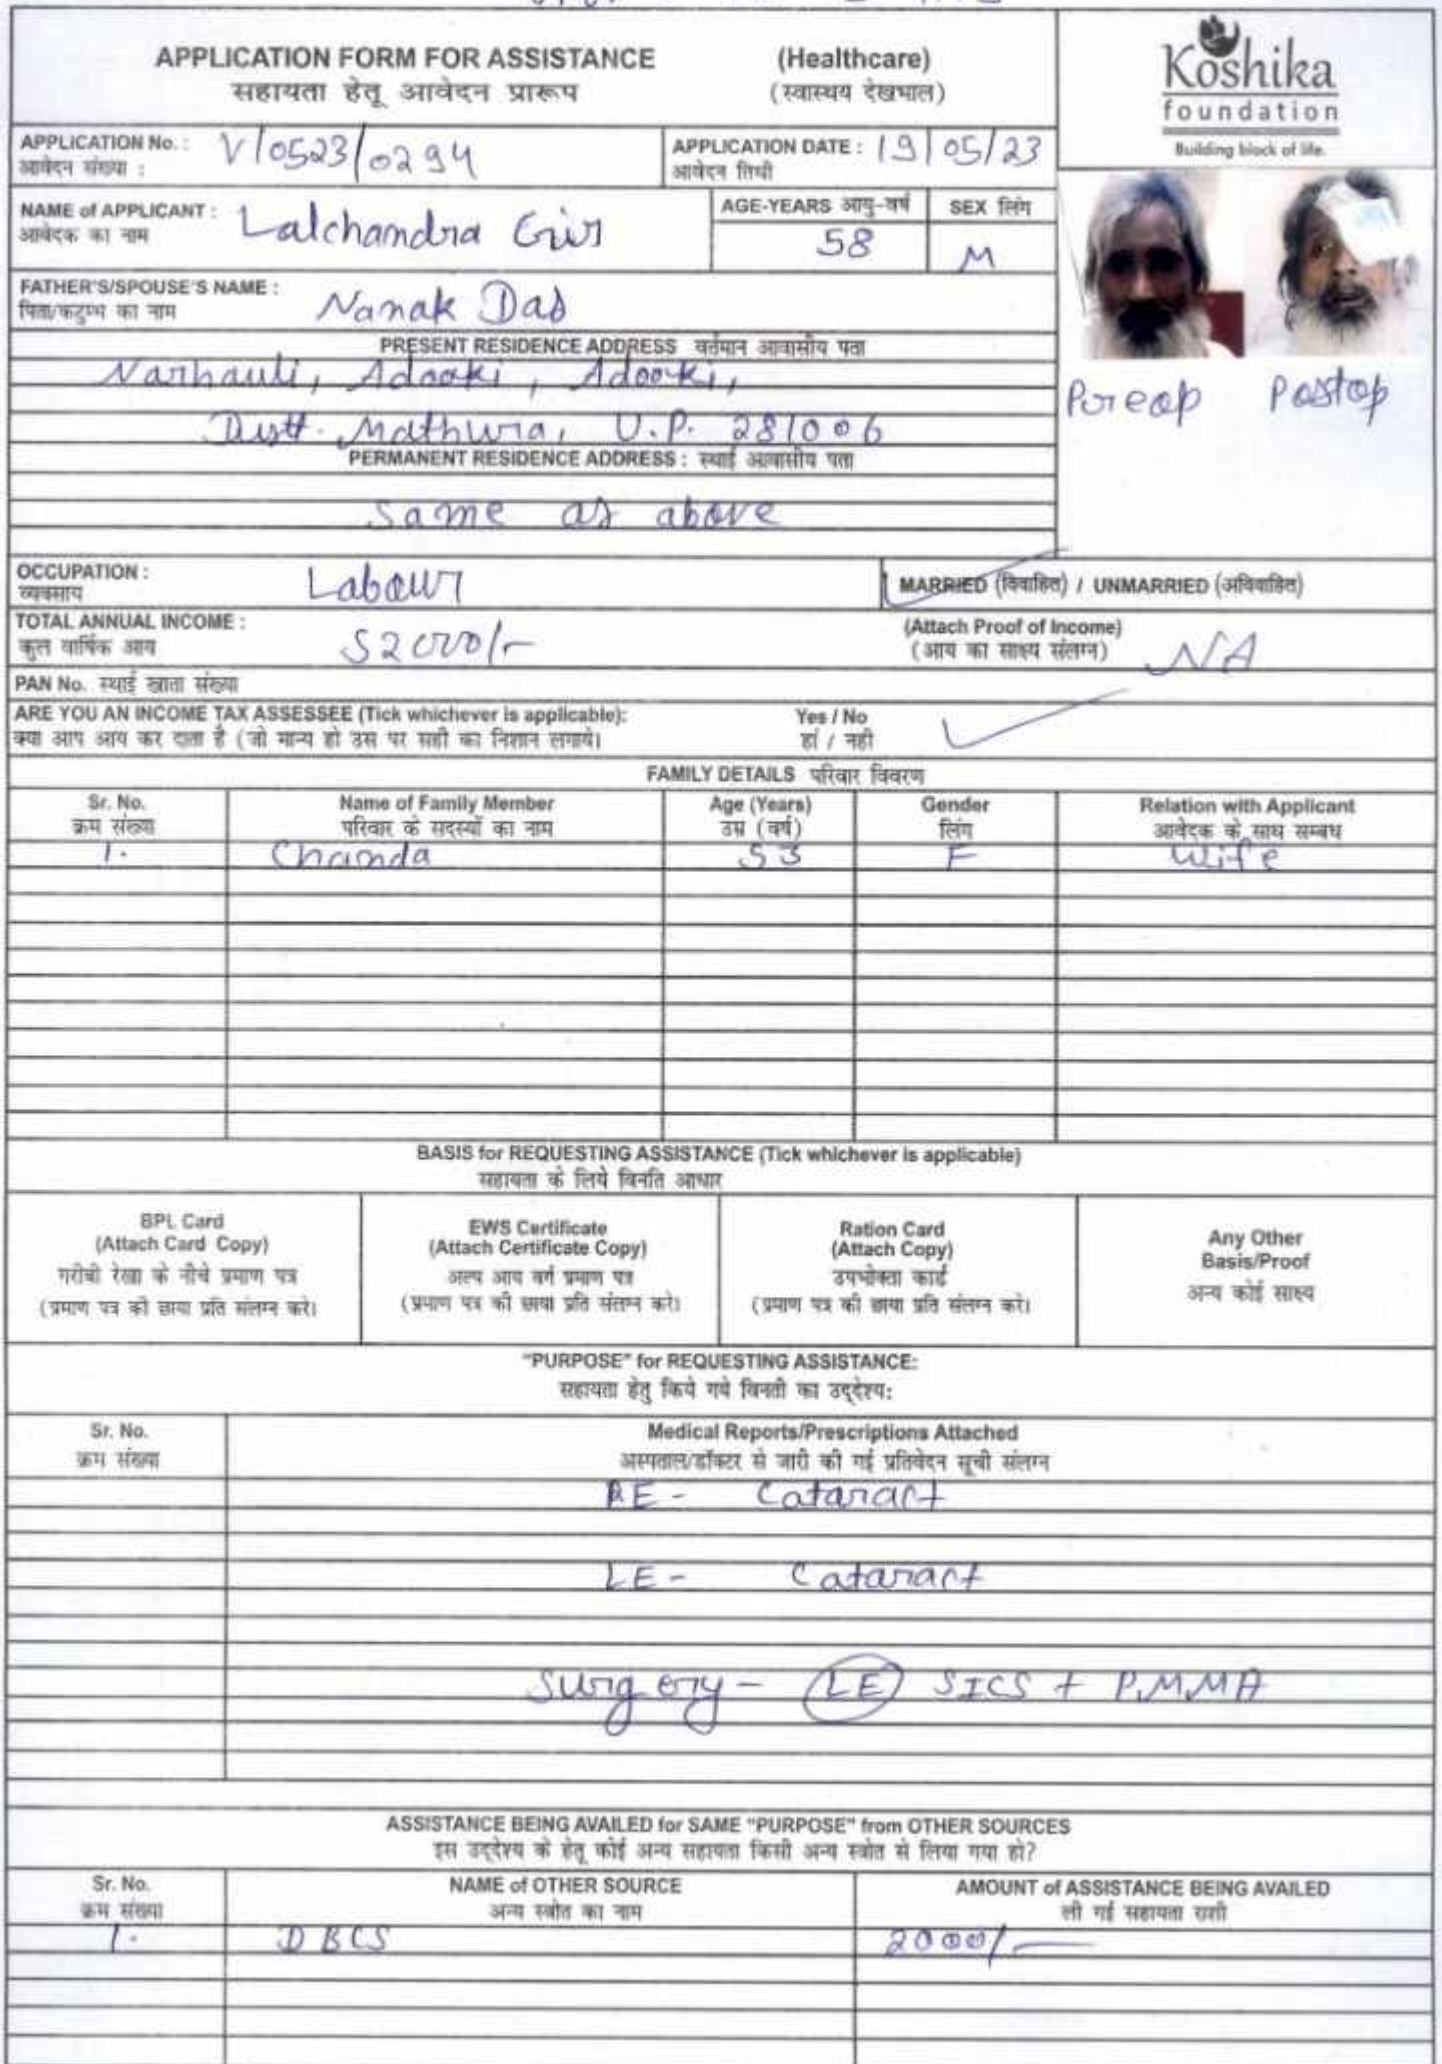 APPLICATION FORM FOR ASSISTANCE (Healthcare)
सहायता हेतू आवेदन प्रारूप (स्वास्थय देखभाल)
Koshika
foundation
Building block of life.
APPLICATION No. : V/0523/0294 APPLICATION DATE : 19/05/23
आवेदन संख्या : आवेदन तिथी
NAME of APPLICANT : Lalchandra Giri AGE-YEARS आयु-वर्ष SEX लिंग
आवेदक का नाम 58 M
FATHER'S/SPOUSE'S NAME : Nanak Das
पिता/कटुम्भ का नाम
PRESENT RESIDENCE ADDRESS वर्तमान आवासीय पता
Narhauli, Adooki, Adooki,
Distt. Mathura, U.P. 281006
Preop Postop
PERMANENT RESIDENCE ADDRESS : स्थाई आवासीय पता
Same as above
OCCUPATION : Labour MARRIED (विवाहित) / UNMARRIED (अविवाहित)
व्यवसाय
TOTAL ANNUAL INCOME : 52000/- (Attach Proof of Income) NA
कुल वार्षिक आय (आय का साक्ष्य संलग्न)
PAN No. स्थाई खाता संख्या
ARE YOU AN INCOME TAX ASSESSEE (Tick whichever is applicable): Yes / No
क्या आप आय कर दाता है (जो मान्य हो उस पर सही का निशान लगाये। हां / नही
FAMILY DETAILS परिवार विवरण
Sr. No. Name of Family Member Age (Years) Gender Relation with Applicant
क्रम संख्या परिवार के सदस्यों का नाम उम्र (वर्ष) लिंग आवेदक के साथ सम्बध
1. Chanda 53 F Wife
BASIS for REQUESTING ASSISTANCE (Tick whichever is applicable)
सहायता के लिये विनति आधार
BPL Card
(Attach Card Copy)
गरीबी रेखा के नीचे प्रमाण पत्र
(प्रमाण पत्र की छाया प्रति संलग्न करे।
EWS Certificate
(Attach Certificate Copy)
अल्प आय वर्ग प्रमाण पत्र
(प्रमाण पत्र की छाया प्रति संलग्न करे।
Ration Card
(Attach Copy)
उपभोक्ता कार्ड
(प्रमाण पत्र की छाया प्रति संलग्न करे।
Any Other
Basis/Proof
अन्य कोई साक्ष्य
"PURPOSE" for REQUESTING ASSISTANCE:
सहायता हेतु किये गये विनती का उद्देश्य:
Sr. No. Medical Reports/Prescriptions Attached
क्रम संख्या अस्पताल/डॉक्टर से जारी की गई प्रतिवेदन सूची संलग्न
RE - Cataract
LE - Cataract
Surgery - LE SICS + PMMA
ASSISTANCE BEING AVAILED for SAME "PURPOSE" from OTHER SOURCES
इस उद्देश्य के हेतू कोई अन्य सहायता किसी अन्य स्त्रोत से लिया गया हो?
Sr. No. NAME of OTHER SOURCE AMOUNT of ASSISTANCE BEING AVAILED
क्रम संख्या अन्य स्त्रोत का नाम ली गई सहायता राशी
1. DBCS 2000/-